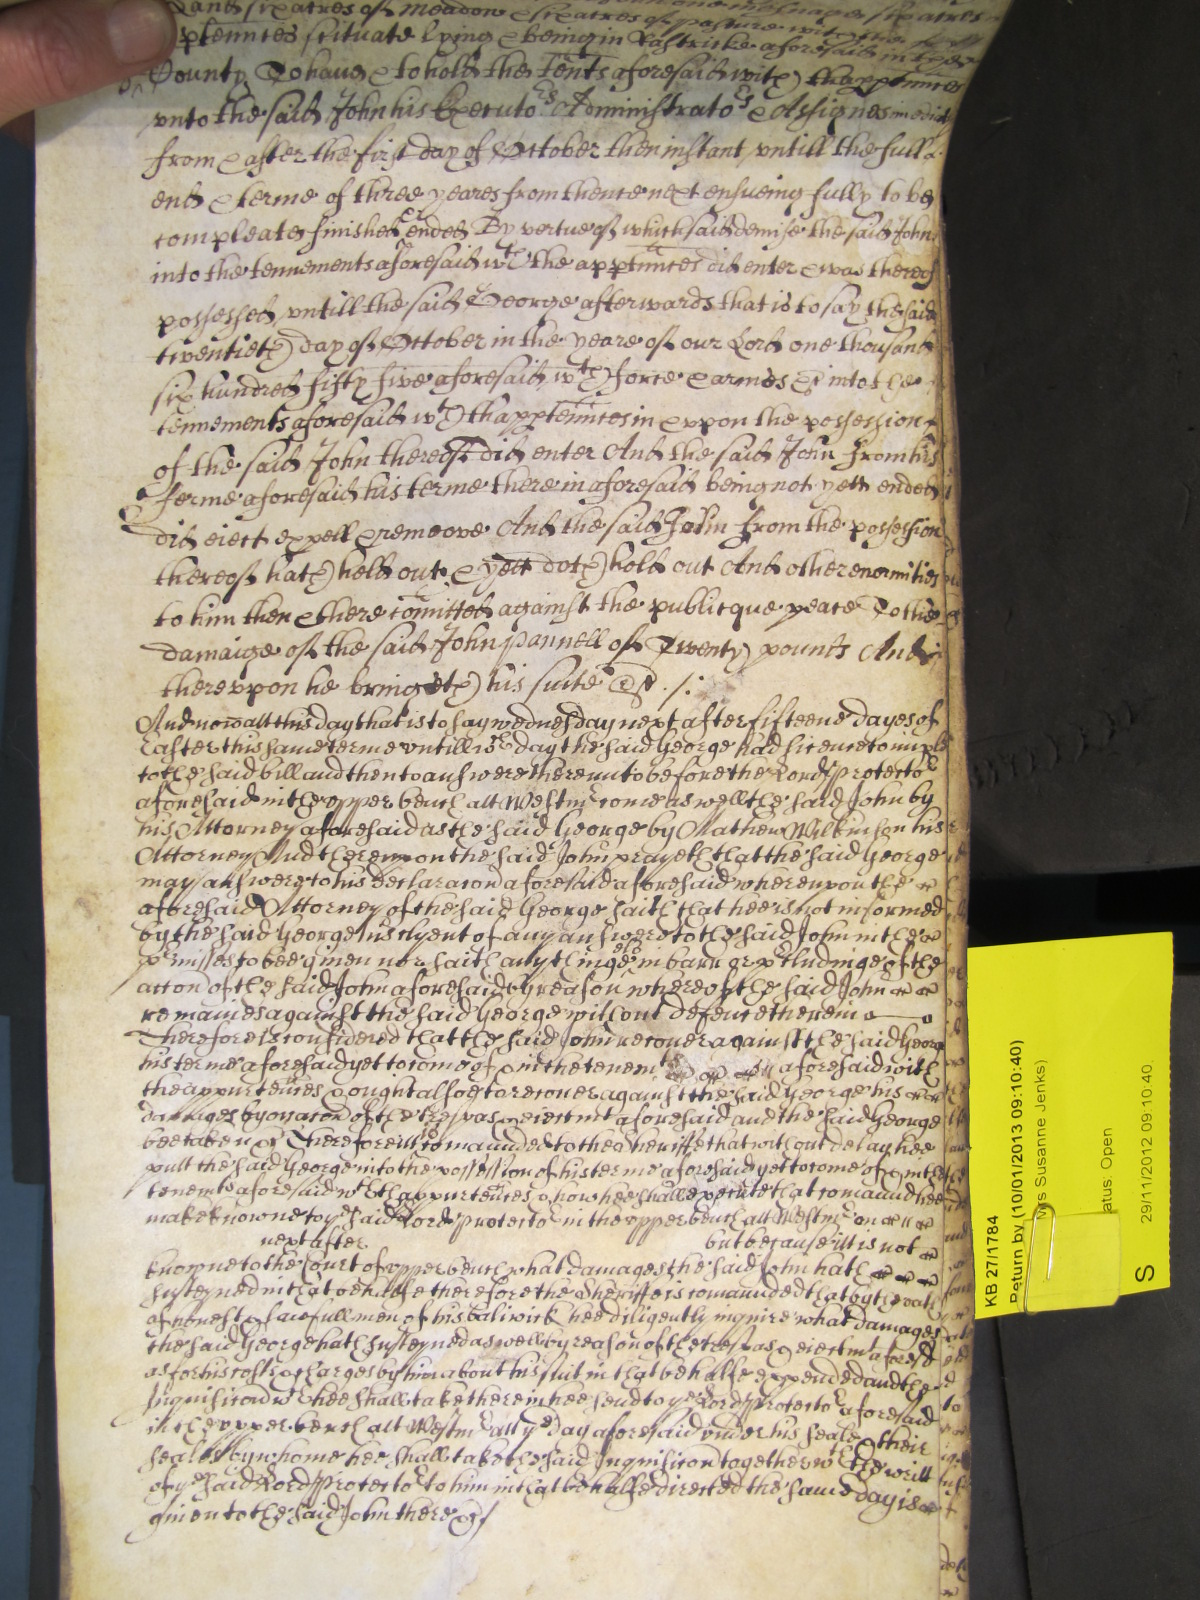 land six acres of meadow & six acres of pasture with the
apptenncs scituate lying & being in Rastricke aforesaid in the
County To have & to hold the Tents aforesaid with thapptenncs
unto the said John his Executors Administrators & Assignes
from & after the first day of October then instant untill the full
end & terme of three yeares from thence next ensueing fully to be
compleate finished & ended By vertue of which said demise the said John
into the tennements aforesaid wth the apptenncs did enter & was thereof
possessed untill the said George afterwards that is to say the said
twentieth day of October in the yeare of our Lord one thousand
six hundred fifty five aforesaid wth force & armes &c into the
tennements aforesaid wth thapptenncs in & uppon the possession
of the said John thereof did enter And the said John from his
ferme aforesaid his terme therein aforesaid being not yett ended
did eiect expell & remoove And the said John from the possession
thereof hath held out & yett doth hold out And other enormities
to him then & there comitted against the publicque peace To the
damaige of the said John Pannell of Twenty pounds And
thereuppon he bringeth his suite &c
And now att this day that is to say wednesday next after fifteene dayes of
Easter this same terme untill wch day the said George had licence to imple
to the said bill and then to answere thereunto before the Lord Protector
aforesaid in the upper bench att Westmr come as well the said John by
his Attorney aforesaid as the said George by Mathew Wilkinson his
Attorney And thereupon the said John prayeth that the said George
may answere to his declaracon aforesaid aforesaid whereupon the
aforesaid Attorney of the said George saith that hee is not informed
by the said George his clyent of any answere to the said John in the
pmisses to bee given nor saith any thinge in barr or pcludinge of the
accon of the said John aforesaid by reason whereof the said John
remaines against the said George without defence therein
Therefore it is considered that the said John recover against the said George
his terme aforesaid yet to come of & in the tenemts aforesaid with
the appurtences & ought alsoe to recover against the said George his
damages by occacon of the trespas & eiectmt aforesaid and the said George
bee taken &c Therefore itt is comaunded to the Sheriffe that without delay hee
putt the said George into the possession of his terme aforesaid yet to come of & in the
tenemts aforesaid wth thappurtences & how hee shall execute that comaund hee
make knowne to ye said Lord Protector in the upper bench att Westmr on
next after but because itt is not
knowne to the Court of upper bench what damages the said John hath
susteyned in that behalfe therefore the Sheriffe is comaunded that by the oath
of honest & lawfull men of his baliwick hee diligently inquire what damages
the said George hath susteyned as well by reason of the trespas & eiectmt aforesd
as for his costs & charges by him about his suit in that behalfe expended and the
Inquisicon wch hee shall take therein hee send to ye Lord Protector aforesaid
in the upper bench att Westmr att ye day aforesaid under his seale & their
seales by whome hee shall take the said Inquisicon together wth the writt
of ye said Lord Protector to him in that behalfe directed the same day is
given to the said John there &c
KB 27/1784
Return by (10/01/2013 09:10:40)
Mrs Susanne Jenks)
atus: Open
29/11/2012 09:10:40
S